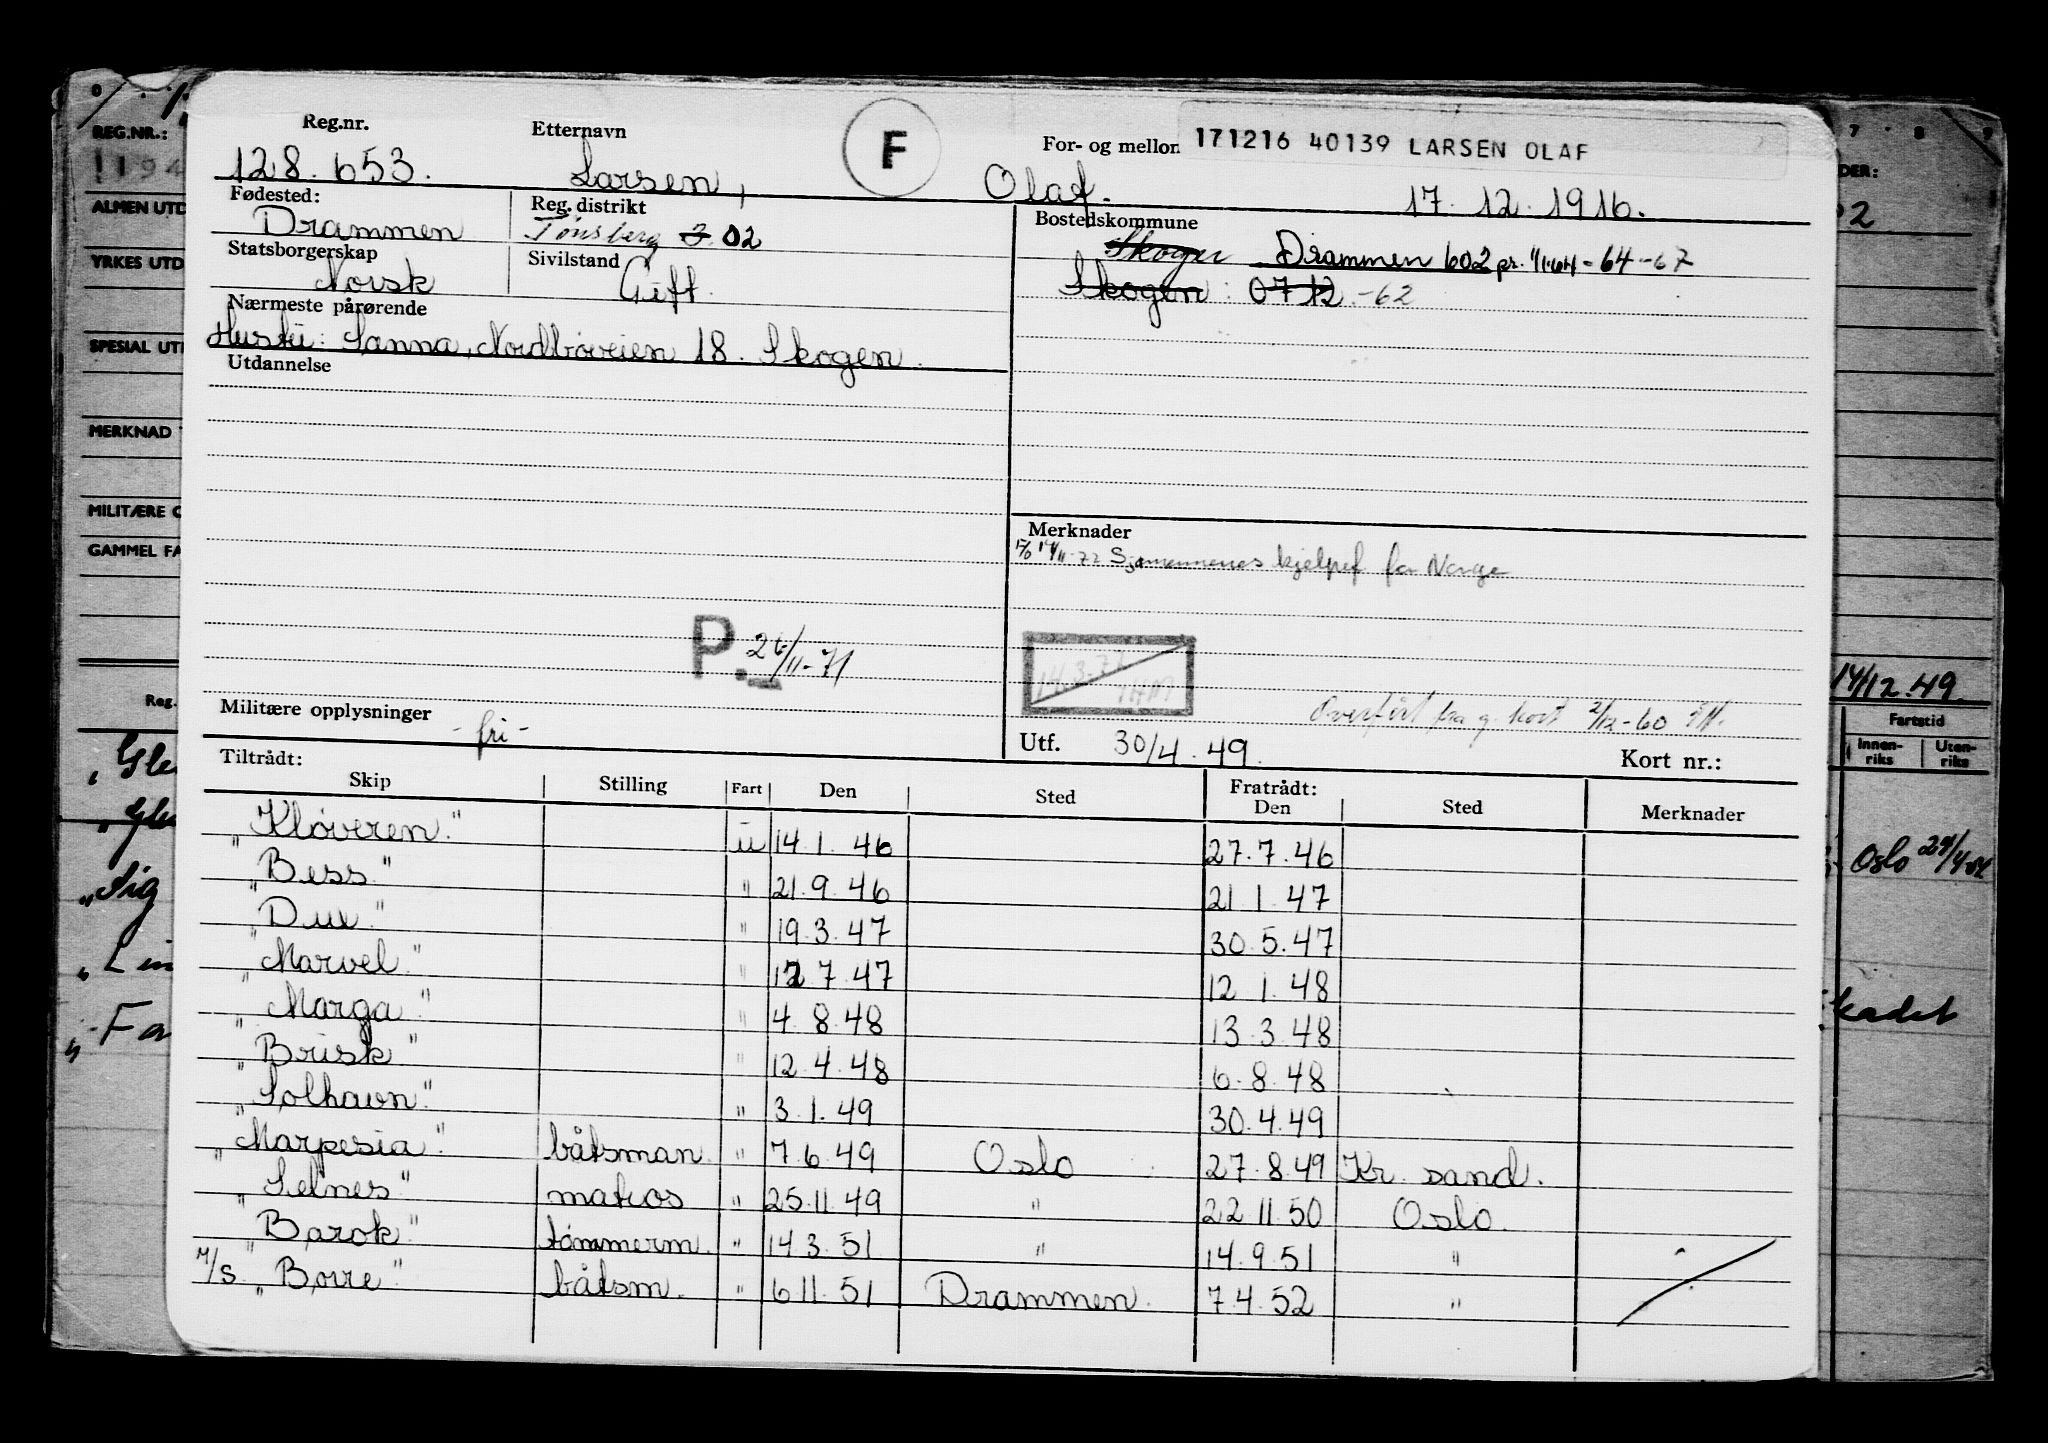 Reg.nr. Etternavn F For- og mellon 171216 40139 LARSEN OLAF
128.653. Larsen, Olaf. 17.12.1916.
Fødested: Reg. distrikt Bostedskommune
Drammen Tønsberg 3 02
Skoger Drammen 602 pr. 1/1-64 - 64 - 67
Statsborgerskap Sivilstand
Norsk Gift.
Skogen: 0712 - 62
Nærmeste pårørende
Hustru: Sanna, Nordbøveien 18. Skogen.
Utdannelse
Merknader
14/11-72 Sjømennenes hjelpef for Norge
P. 26/11-71
14.3.72
Overført fra g. kort 2/12-60
Militære opplysninger -fri-
Utf. 30/4.49. Kort nr.:
Tiltrådt: Fratrådt:
Skip Stilling Fart Den Sted Den Sted Merknader
"Kløveren." u 14.1.46 27.7.46
"Bess" " 21.9.46 21.1.47
"Dux" " 19.3.47 30.5.47
"Marvel" " 12.7.47 12.1.48
"Marga" " 4.8.48 13.3.48
"Brisk" " 12.4.48 6.8.48
"Solhavn" " 3.1.49 30.4.49
"Marpesia" båtsman " 7.6.49 Oslo 27.8.49 Kr. sand.
"Selnes" matros " 25.11.49 " 22.11.50 Oslo.
"Barok" tømmerm. " 14.3.51 " 14.9.51 "
M/S "Borre" båtsm. " 6.11.51 Drammen. 7.4.52 "
REG.NR.:
1194
ALMEN UTD
YRKES UTD
SPESIAL UT
MERKNAD
MILITÆRE
GAMMEL FA
Reg.
7 8 9
DER:
02
14/12.49.
Fartstid
Innen-riks Uten-riks
Oslo